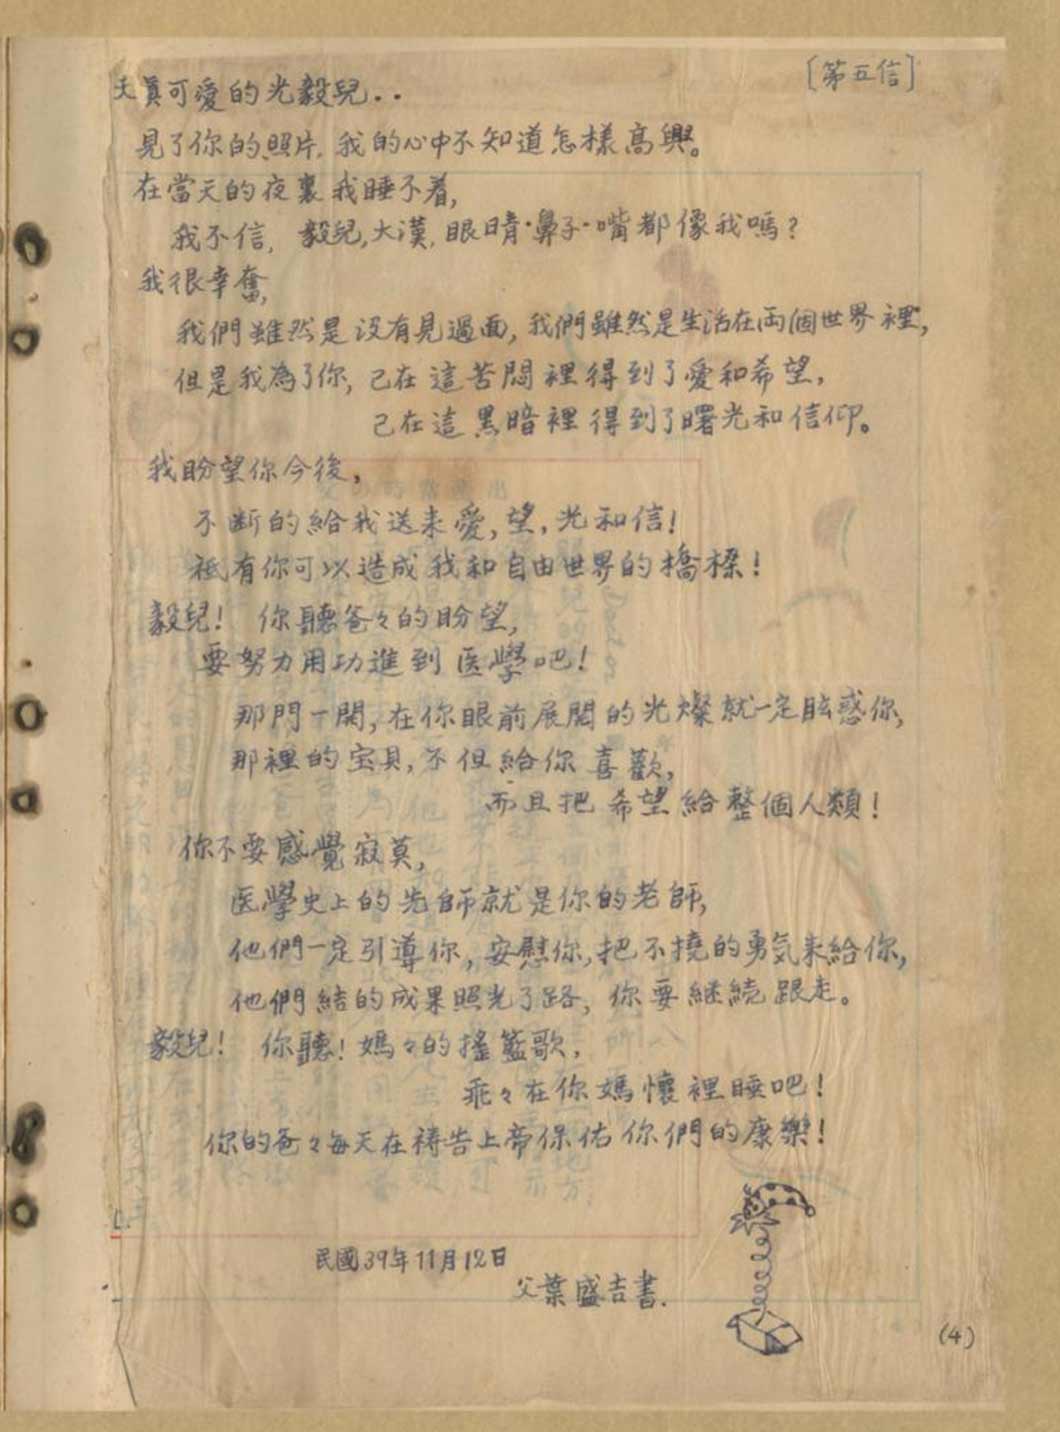 〔第五信〕
天真可愛的光毅兒..
見了你的照片, 我的心中不知道怎樣高興。
在當天的夜裏我睡不着,
我不信, 毅兒,大漢, 眼睛·鼻子·嘴都像我嗎?
我很幸奮,
我們雖然是沒有見過面, 我們雖然是生活在両個世界裡,
但是我為了你, 己在這苦悶裡得到了愛和希望,
己在這黑暗裡得到了曙光和信仰。
我盼望你今後,
不斷的給我送来愛,望,光和信!
祗有你可以造成我和自由世界的橋樑!
毅兒! 你聽爸々的盼望,
要努力用功進到医學吧!
那門一開, 在你眼前展開的光燦就一定眩惑你,
那裡的宝貝, 不但給你喜歡,
而且把希望給整個人類!
你不要感覺寂莫,
医學史上的先師就是你的老師,
他們一定引導你, 安慰你, 把不撓的勇気来給你,
他們結的成果照光了路, 你要継続跟走。
毅兒! 你聽! 媽々的搖籃歌,
乖々在你媽懷裡睡吧!
你的爸々每天在祷告上帝保佑你們的康樂!
民國39年11月12日
父葉盛吉書.
(4)